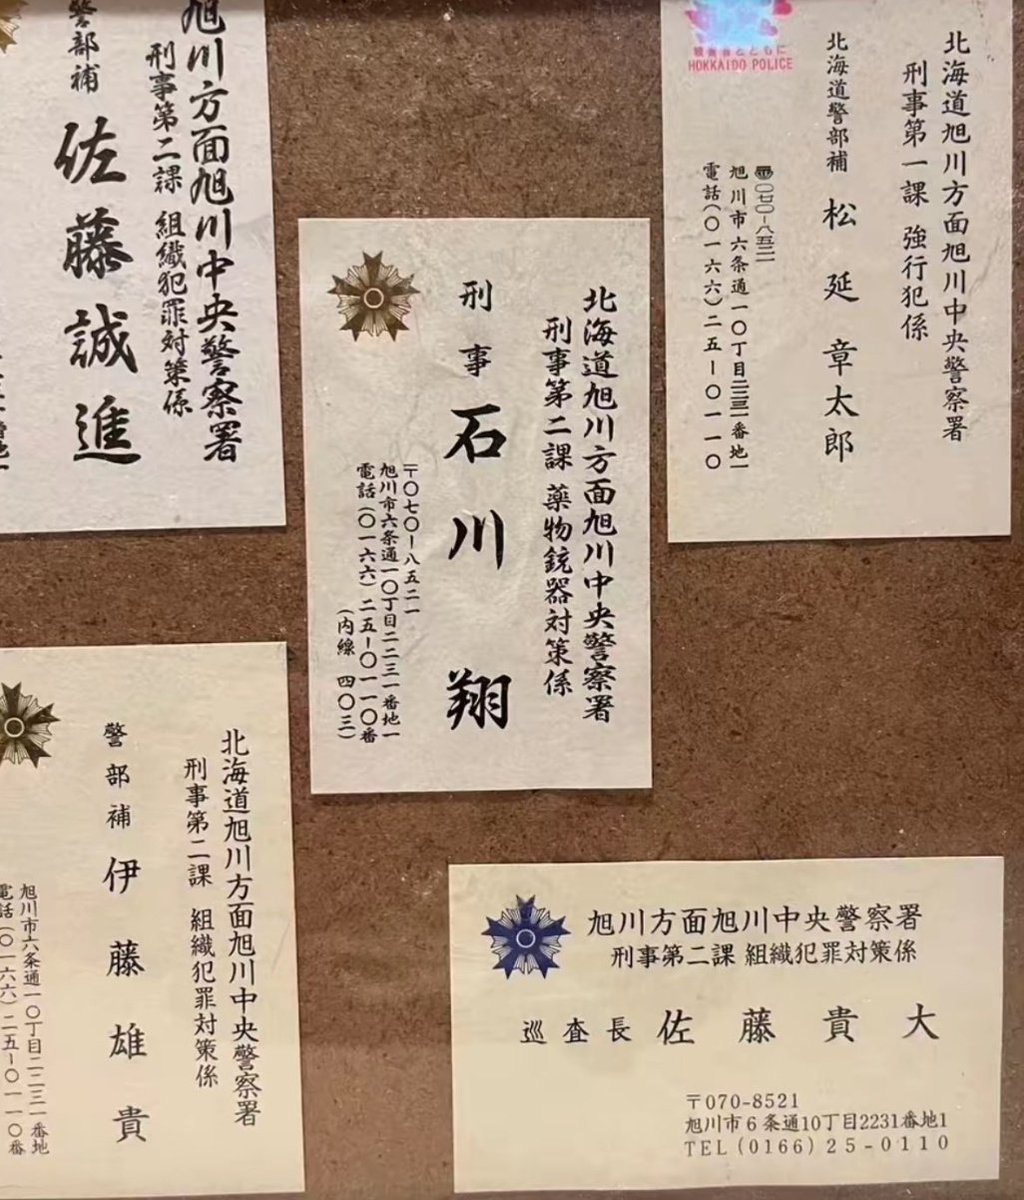 旭川方面旭川中央警察署
刑事第二課 組織犯罪対策係
警部補 佐藤誠進
北海道旭川方面旭川中央警察署
刑事第二課 薬物銃器対策係
刑事 石川 翔
〒〇七〇-八五二一
旭川市六条通一〇丁目二二三一番地一
電話(〇一六六)二五-〇一一〇番
(内線 四〇三)
HOKKAIDO POLICE
北海道旭川方面旭川中央警察署
刑事第一課 強行犯係
北海道警部補 松延章太郎
〒〇七〇-八五二一
旭川市六条通一〇丁目二二三一番地一
電話(〇一六六)二五-〇一一〇
北海道旭川方面旭川中央警察署
刑事第二課 組織犯罪対策係
警部補 伊藤雄貴
旭川市六条通一〇丁目二二三一番地
電話(〇一六六)二五-〇一一〇番
旭川方面旭川中央警察署
刑事第二課 組織犯罪対策係
巡査長 佐藤貴大
〒070-8521
旭川市6条通10丁目2231番地1
TEL(0166)25-0110